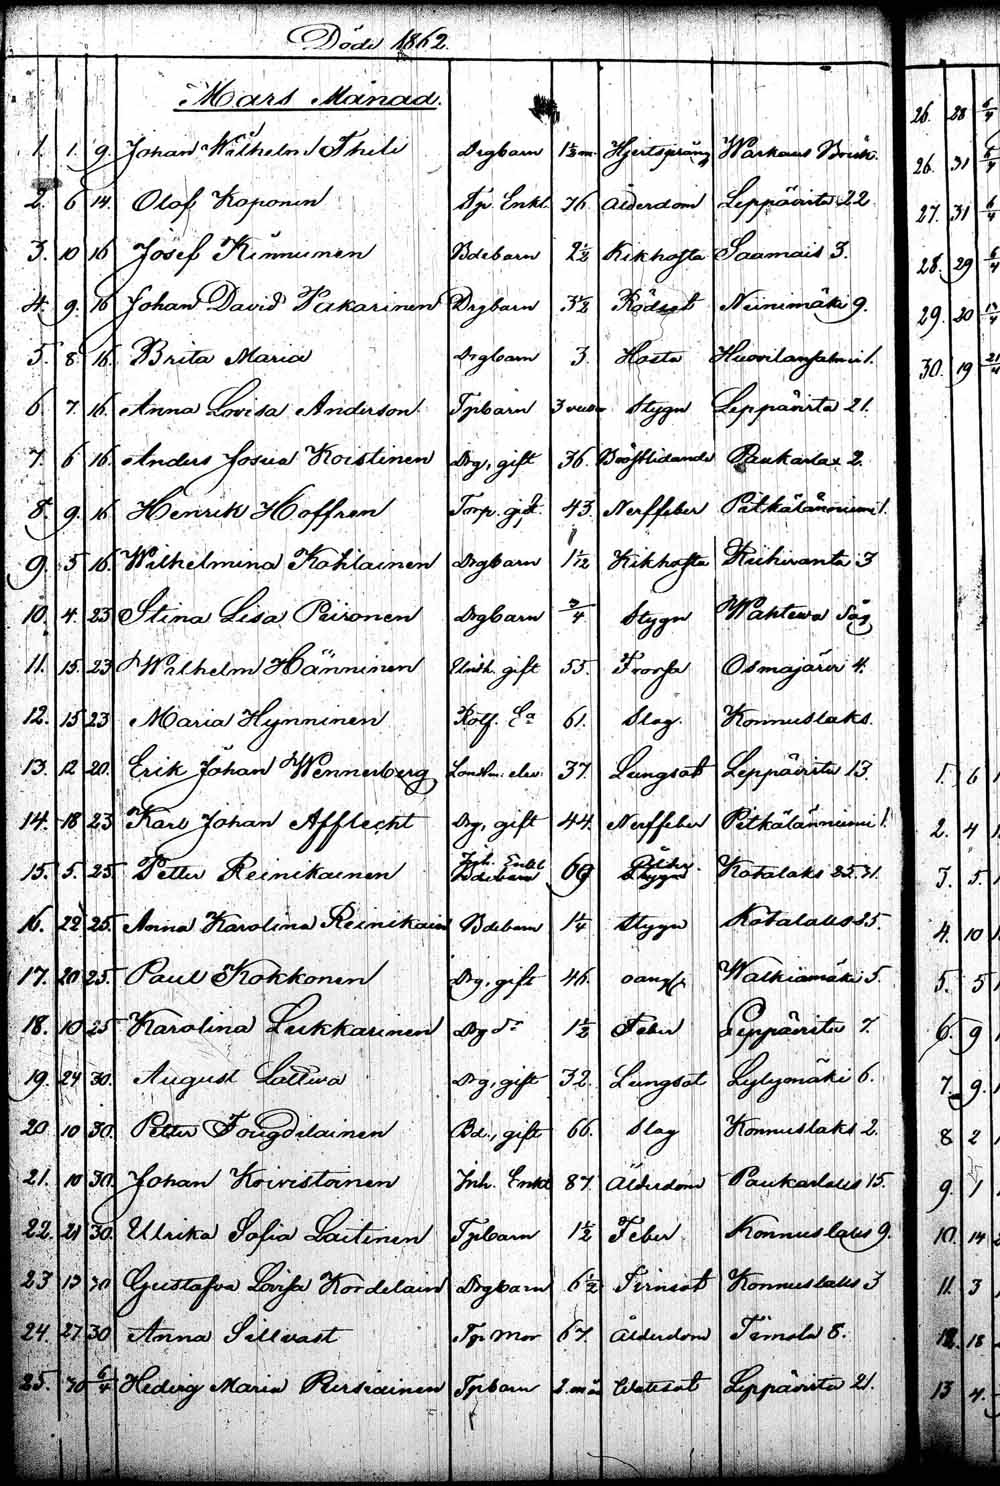 Döde 1862.
Mars Månad.
1. 1. 9. Johan Wilhelm Thile Drgbarn 1½ m. Hjertspräng Warkaus Bruk.
2. 6 14. Olof Koponen Tp. Enkl. 76. Ålderdom Leppävirta 22
3. 10 16 Josef Kinnunen Bdebarn 2½ Kikhosta Saamais 3.
4. 9. 16 Johan David Kakarinen Drgbarn 3½ Rödsot Neinimäki 9.
5. 8 16. Brita Maria Drgbarn 3. Hosta 1.
6. 7. 16. Anna Lovisa Anderson Tpbarn 3 Stygn Leppävirta 21.
7. 6 16. Anders Josua Koistinen Drg, gift 36. Bröstlidande Paukarlax 2.
8. 9. 16 Henrik Hoffren Torp. gift. 43. Nerffeber Pitkälänniemi 1.
9. 5 16. Wilhelmina Kohlainen Drgbarn 1 1/12 Kikhosta Riihiranta 3
10. 4. 23 Stina Lisa Piironen Drgbarn 3/4 Stygn Wahtewa Såg
11. 15. 23 Wilhelm Hänninen Inh. gift 55. Frossa Osmajärvi 4.
12. 15 23 Maria Hynninen Rotf. Ea 61. Slag. Konnuslaks.
13. 12 20. Erik Johan Wennerberg Länsm. elev. 37. Lungsot Leppävirta 13.
14. 18 23 Karl Johan Afflecht Drg, gift 44. Nerffeber Pitkälänniemi 1.
15. 5. 25. Petter Reinikainen Inh. Enkl 69 Ålder. Kotalaks 25.
16. 22 25. Anna Karolina Reinikain Bdebarn 1¼ Stygn Kotalaks 25.
17. 20 25. Paul Kokkonen Drg, gift 46. Walkiamäki 5.
18. 10 25 Karolina Lukkarinen Drg dr 1½ Feber Leppävirta 7.
19. 24 30. August Lattwa Drg, gift 32. Lungsot Lylyomäki 6.
20. 10 30. Petter Fougdilainen Bd., gift 66. Slag Konnuslaks 2.
21. 10 30. Johan Koivistoinen Inh. Enkl 87. Ålderdom Paukarlaks 15.
22. 21 30. Ulrika Sofia Laitinen Tpbarn 1½ Feber Konnuslaks 9.
23 13 30 Gustafva Lovisa Kordelain Drgbarn 6½ Tvinsot Konnuslaks 3
24. 27. 30 Anna Sillvast Tp mor 67. Ålderdom Timola 8.
25. 30 6/4 Hedvig Maria Persiainen Tpbarn 2. mån Leppävirta 21.
26. 28 6/4
26. 31 6/4
27. 31 6/4
28. 29 6/4
29. 20
30. 19 21/4
1. 6
2. 4
3. 5
4. 10
5. 5
6. 9
7. 9.
8 2
9. 1
10. 14
11. 3
12. 18
13 4.